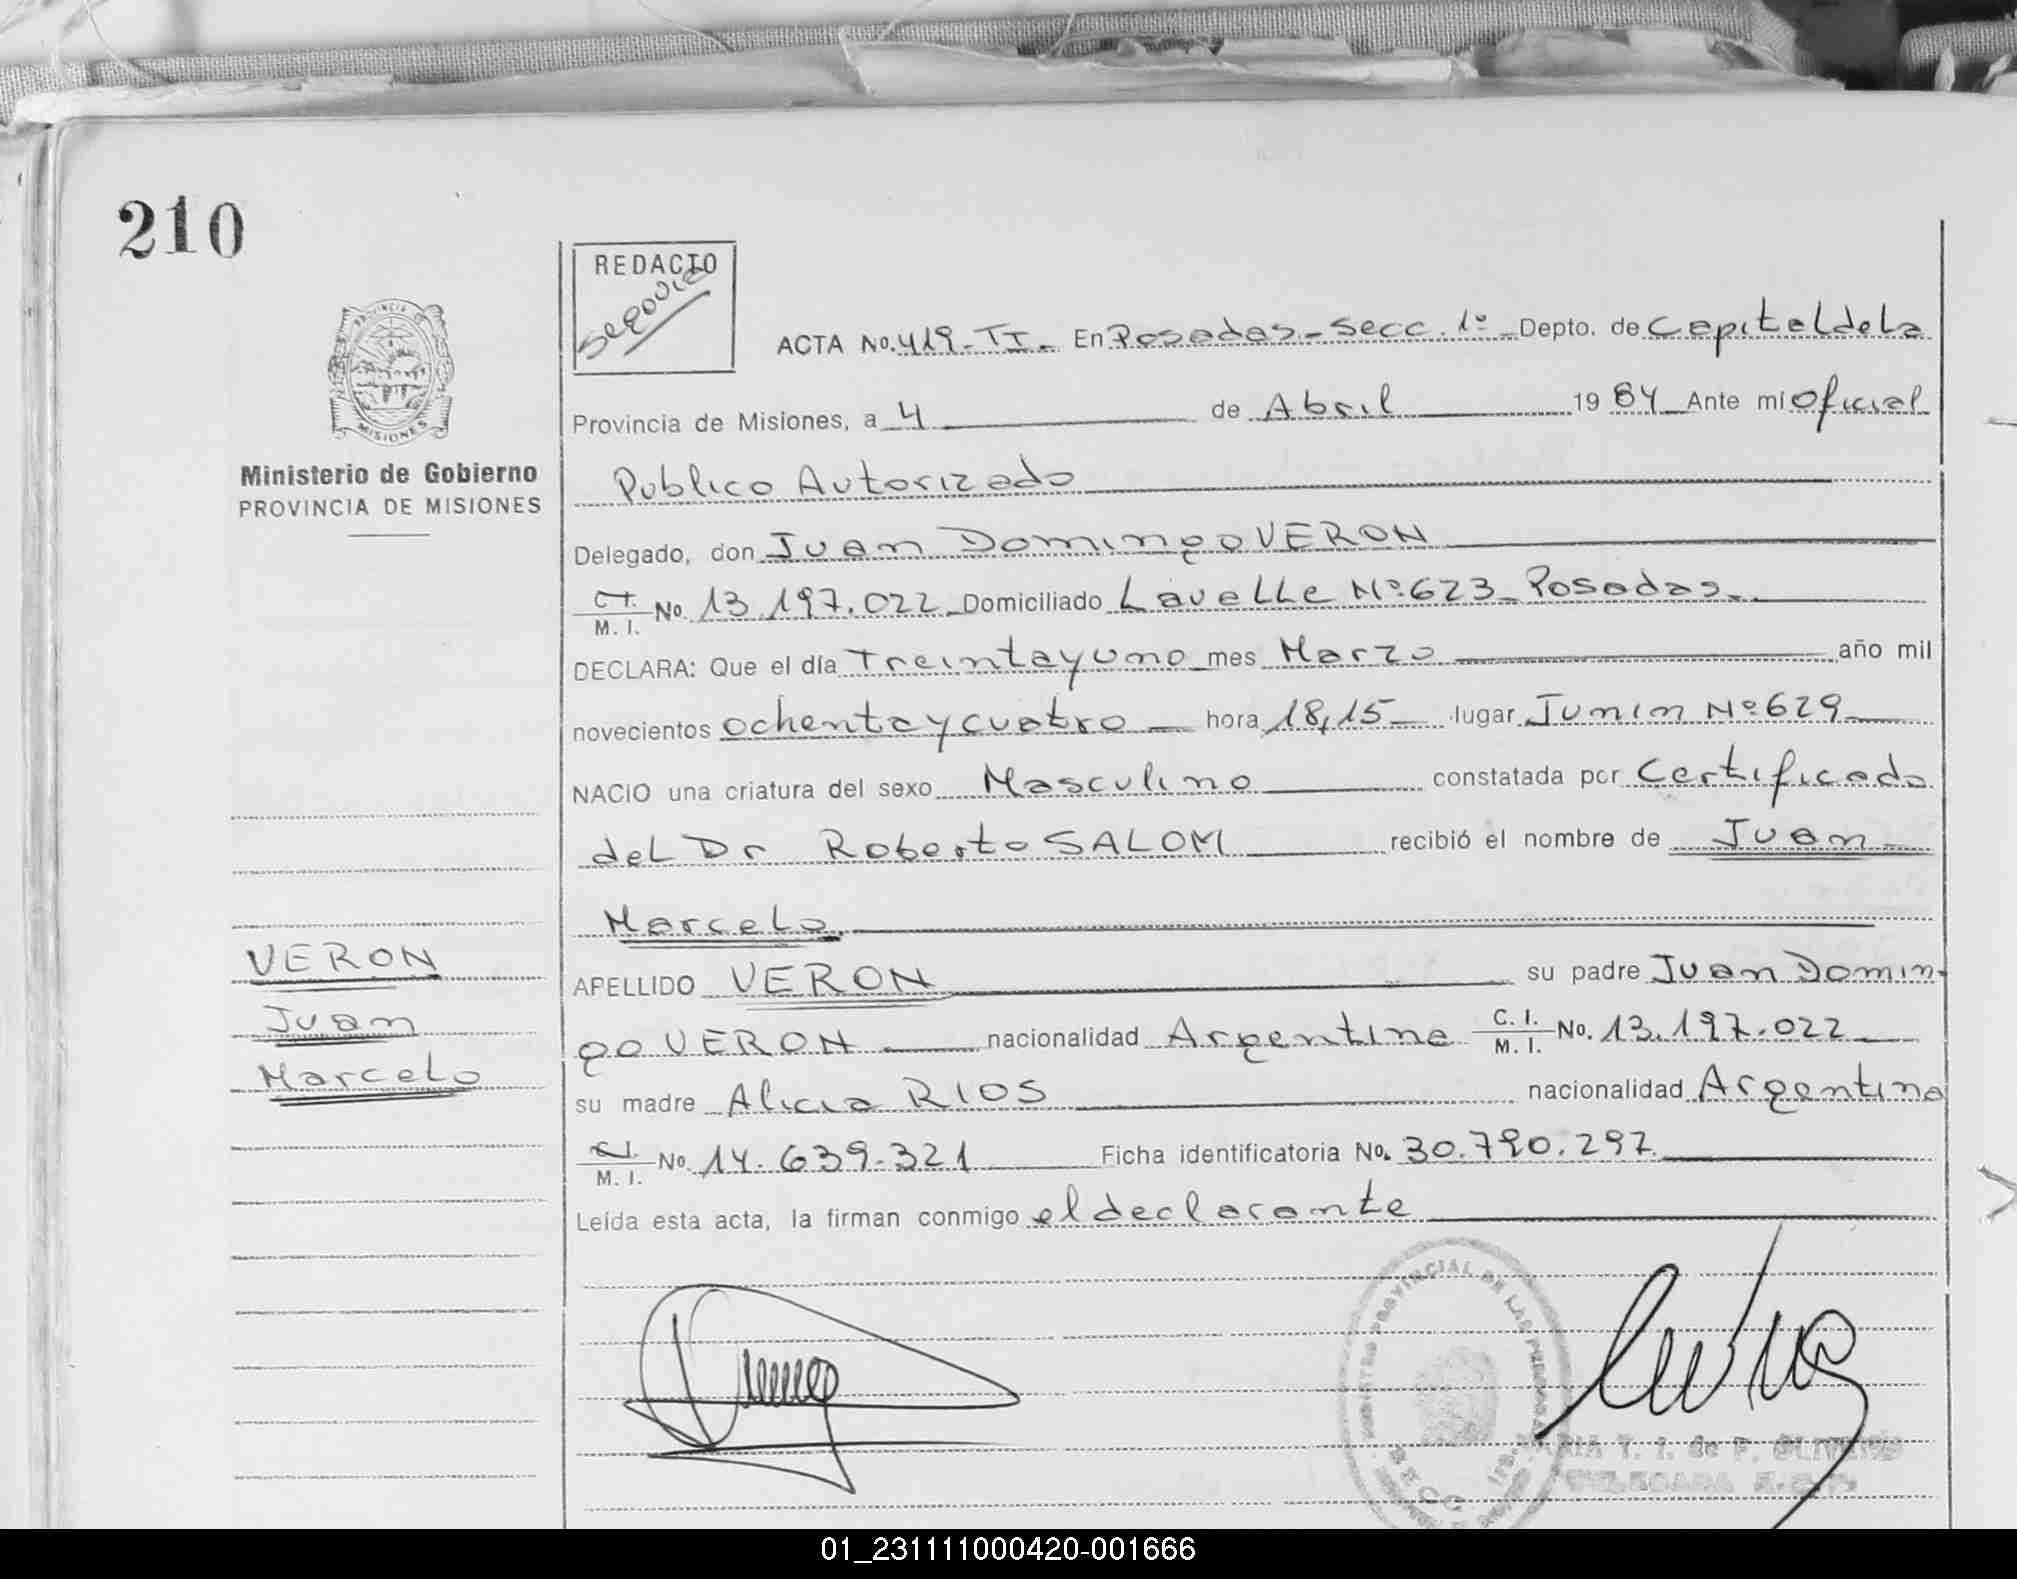 210
REDACTO
Segovia
PROVINCIA DE
MISIONES
Ministerio de Gobierno
PROVINCIA DE MISIONES
ACTA No. 419-TI- En Posadas-Secc.1º- Depto. de Capital de la
Provincia de Misiones, a 4 de Abril 1984 Ante mi Oficial
Publico Autorizado
Delegado, don Juan Domingo VERON
C.I. M. I. No. 13.197.022 Domiciliado Lavalle Nº 623 Posadas.
DECLARA: Que el día Treinta y uno mes Marzo año mil
novecientos ochenta y cuatro hora 18,15 lugar Junin Nº 629
NACIO una criatura del sexo Masculino constatada por Certificado
del Dr Roberto SALOM recibió el nombre de Juan
Marcelo.
APELLIDO VERON su padre Juan Domin-
go VERON nacionalidad Argentina C. I. M. I. No. 13.197.022
su madre Alicia RIOS nacionalidad Argentina
C.I. M. I. No. 14.639.321 Ficha identificatoria No. 30.790.297
Leída esta acta, la firman conmigo el declarante
VERON
Juan
Marcelo
PROVINCIAL DE LAS PERSONAS
SECC.
MARIA T. I. de F. OLIVERA
DELEGADA
01_231111000420-001666